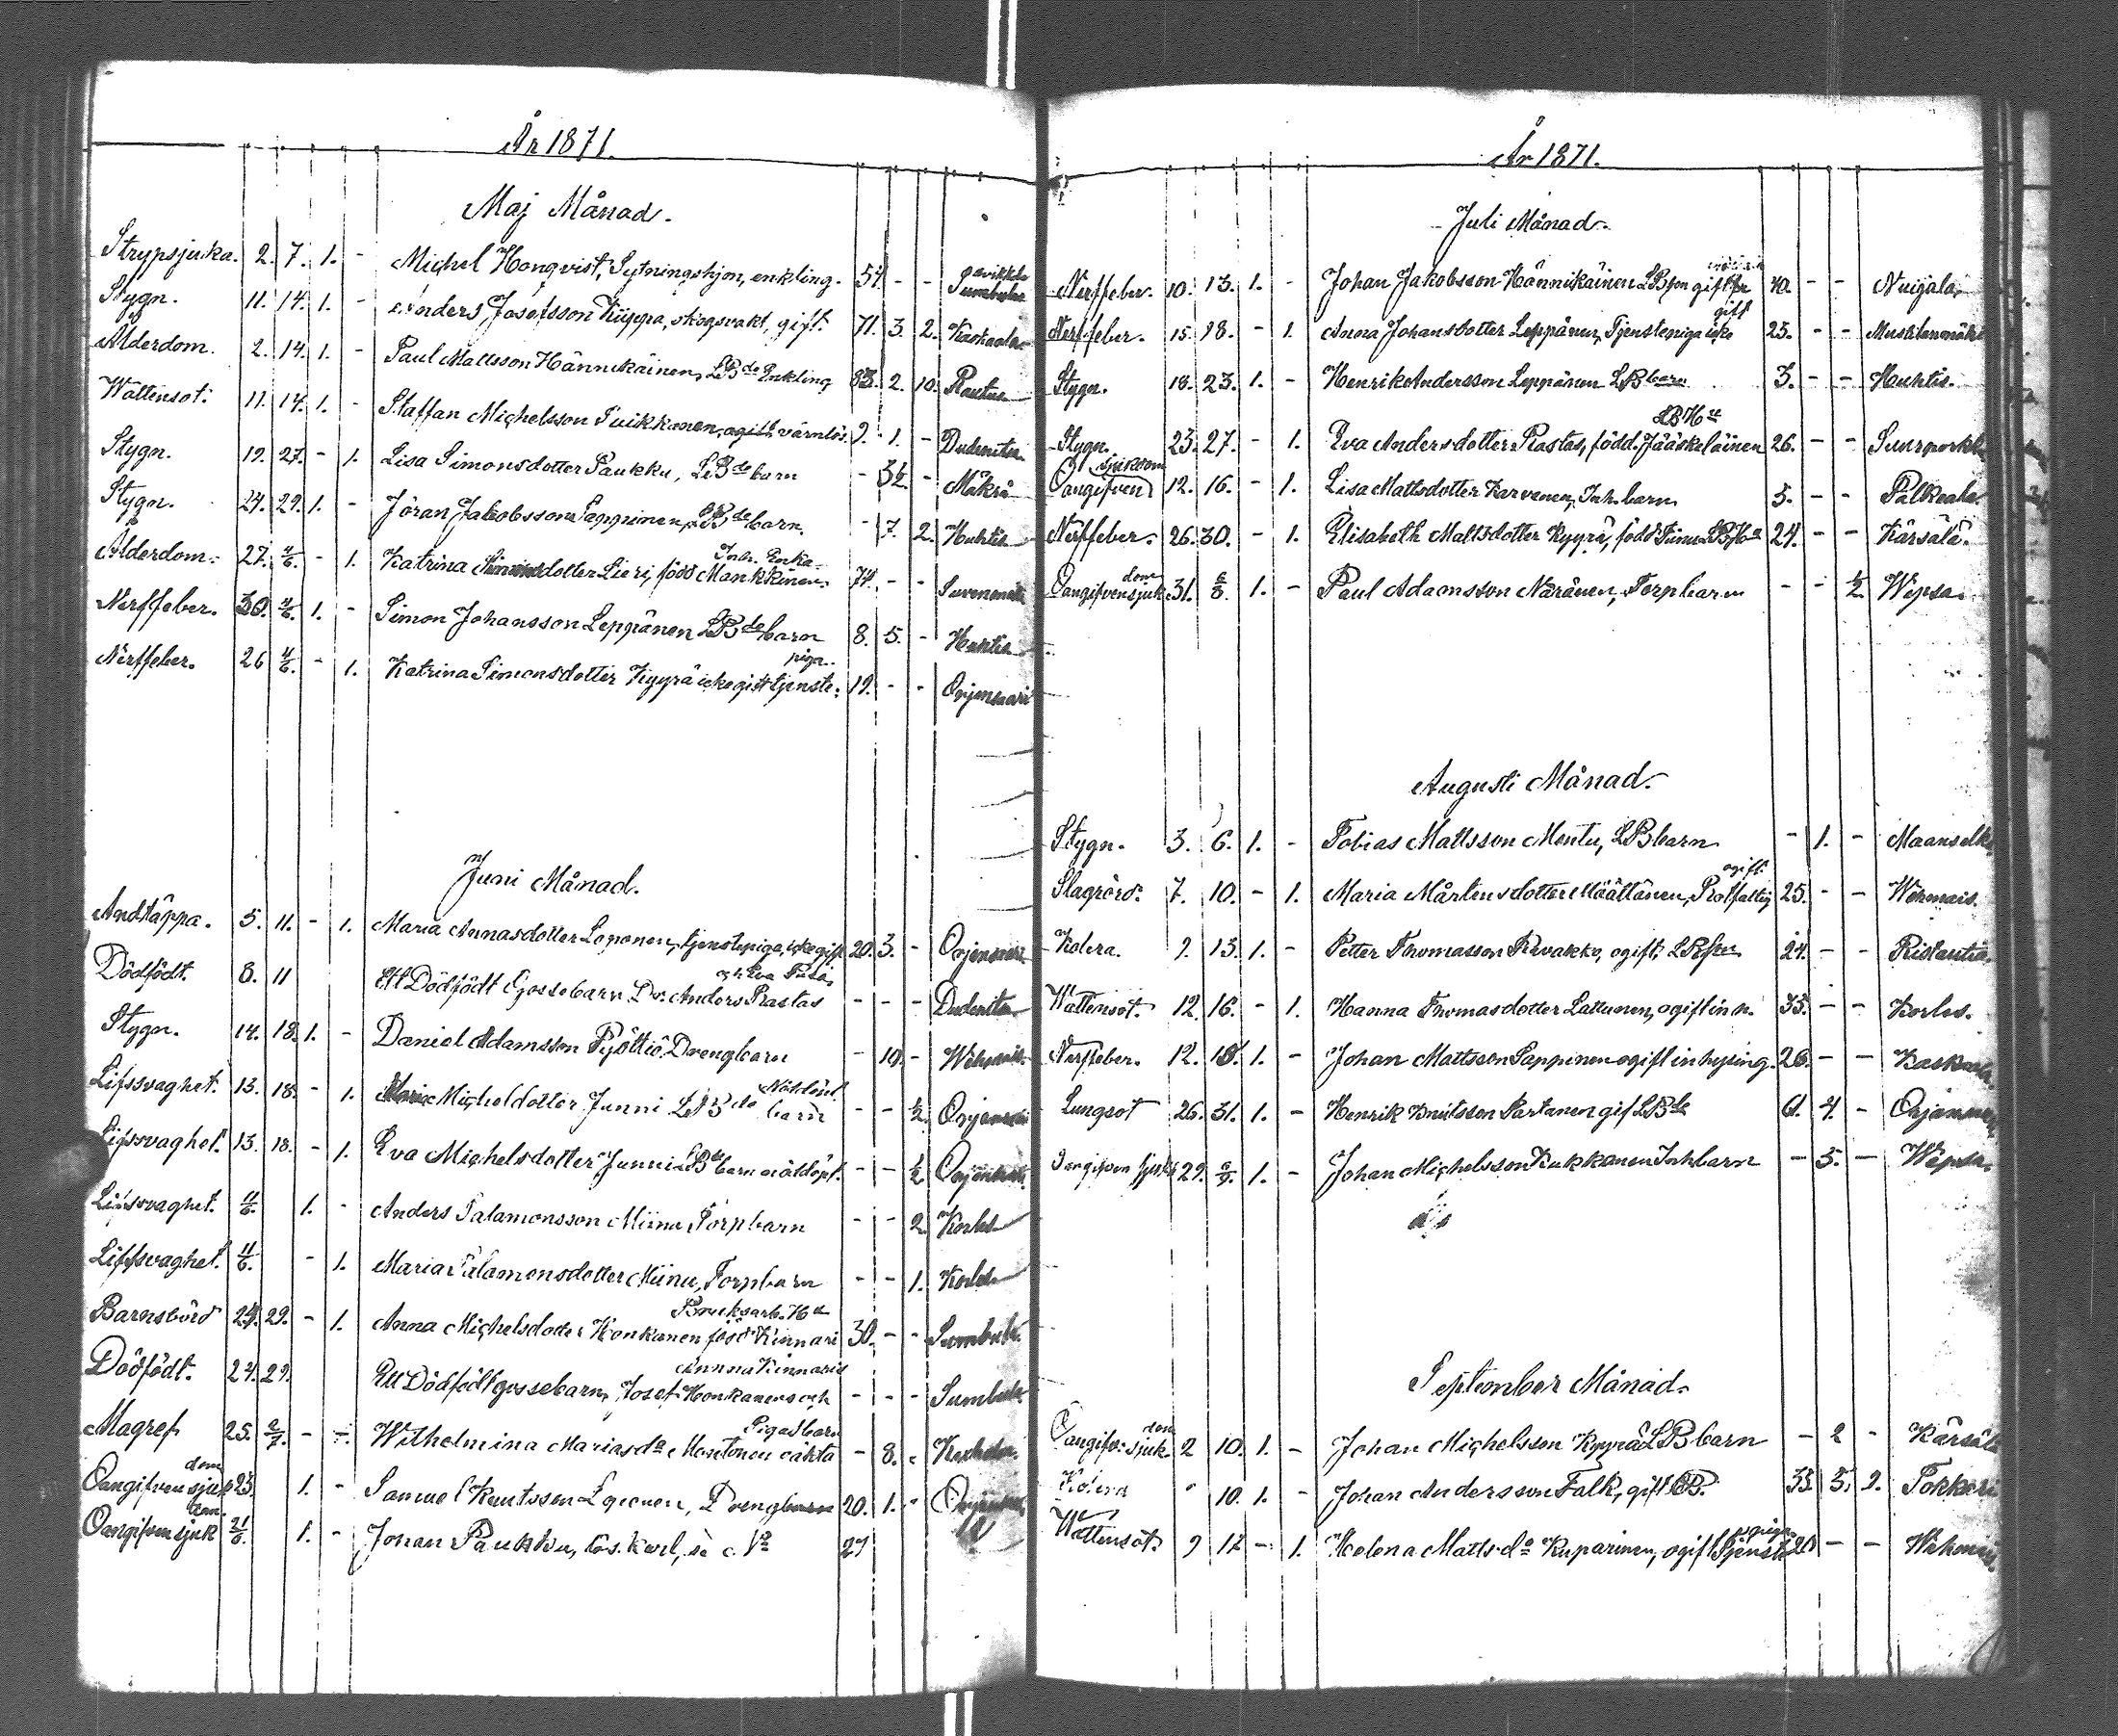 År 1871.
Maj Månad.
Strypsjuka. 2. 7. 1. - Michel Honqvist, Sytningshjon, enkling. 54 - - Sumbula
Stygn. 11. 14. 1. - Anders Josefsson Küppa, skogsvakt, gift. 71. 3. 2.
Ålderdom. 2. 14. 1. - Paul Mattsson Hännikäinen, LBde Enkling 83. 2. 10. Rautus
Wattensot. 11. 14. 1. - Staffan Michelsson Puikkonen, ogift, värnlös. 9. 1. -
Stygn. 19. 27. - 1. Lisa Simonsdotter Paukku, LBde barn - 3½ - Mäkrä
Stygn. 24. 29. 1. - Jöran Jakobsson Pappinen, LBde barn. - 7. 2. Huhtis
Inh. Enka.
Ålderdom. 27. 4/6. - 1. Katrina dotter Lieri, född Mankkinen. 74. - -
Nerffeber. 30. 4/6. 1. - Simon Johansson Leppänen LBde barn 8. 5. - Huhtis
piga.
Nerffeber. 26 4/6. - 1. Katrina Simonsdotter Kyyrä icke gift tjenste: 19. - - Orjansaari
Juni Månad.
Andtäppa. 5. 11. - 1. Maria Annasdotter Loponen, tjenstepiga, icke gift 20. 3. - Orjansaari
och Eva
Dödfödt. 8. 11 Ett Dödfödt Gossebarn Dr: Anders Rastas - - -
Stygn. 14. 18. 1. - Daniel Adamsson Pyöttiö, Drengbarn - 10. -
Nöddöpt
Lifssvaghet. 13. 18. - 1. Maria Michelsdotter Junni LBde barn - - ½ Orjansaari
Lifssvaghet. 13. 18. - 1. Eva Michelsdotter Junni LBde barn nöddöpt. - - ½ Orjansaari
Lifssvaghet. 11/6. 1. - Anders Salamonsson Miinu Torpbarn - - 2. Korles
Lifssvaghet. 11/6. - 1. Maria Salamonsdotter Miinu, Torpbarn - - 1. Korles
Bruksarb. Ha
Barnsbörd 24. 29. - 1. Anna Michelsdotter Honkanen född Kinnari 30. - - Sumbula
Anna Kinnaris
Dödfödt. 24. 29. Ett Dödfödt gossebarn, Josef Honkanens och - - - Sumbula
Pigas barn
Magref 25. 2/7. - 1. Wilhelmina Mariasdr Montonen oäkta - 8. -
dom
Oangifven sjuk 23. 1. - Samuel Knutsson Loponen, Drengbarn 20. 1. - Orjansaari
dom.
Oangifven sjuk 21/6. 1. - Johan Paukku, lös. karl, 27
År 1871.
Juli Månad.
Nerffeber. 10. 13. 1. - Johan Jakobsson Hännikäinen LBson gift 40. - - Nuijala
gift
Nerffeber. 15. 18. - 1. Anna Johansdotter Leppänen, Tjenstepiga icke 25. - -
Stygn. 18. 23. 1. - Henrik Andersson Leppänen LBbarn 3. - - Huhtis.
LBHu
Stygn. 23. 27. - 1. Eva Andersdotter Rastas, född Jääskeläinen 26. - -
sjukdom
Oangifven 12. 16. - 1. Lisa Mattsdotter Karvanen, Inh. barn 5. - - Palkeala.
Nerffeber. 26. 30. - 1. Elisabeth Mattsdotter Kyyrä, född LBHu 24. - - Kärsälä.
dom
Oangifven sjuk 31. 6/8. 1. - Paul Adamsson Näränen, Torpbarn - - ½ Wepsa
Augusti Månad.
Stygn. 3. 6. 1. - Tobias Mattsson Mentu, LBbarn - 1. - Maanselkä
ogift
Slagrörd. 7. 10. - 1. Maria Mårtensdotter Määttänen, Rotfattig 25. - -
Kolera. 9. 13. 1. - Petter Thomasson Rivakko, ogift, LBson 24. - -
Wattensot. 12. 16. - 1. Hanna Thomasdotter Lattunen, ogift inh. 35. - - Korles.
Nerffeber. 12. 18. 1. - Johan Mattsson Pappinen ogift inhysing. 26. - -
Lungsot 26. 31. 1. - Henrik Knutsson Partanen gift LBde 61. 4. - Orjansaari
Oangifven sjukd 29. 6/9. 1. - Johan Michelsson Kukkonen Inhbarn - 5. - Wepsa
September Månad.
dom
Oangifv: sjuk 2 10. 1. - Johan Michelsson Kyyrä LBbarn - 2 - Kärsälä
Kolera " 10. 1. - Johan Andersson Falk, gift LB. 35. 5. 9. Tokkari
piga
Wattensot. 9 17 - 1. Helena Mattsdr Kuparinen, ogift tjenst 20 - -